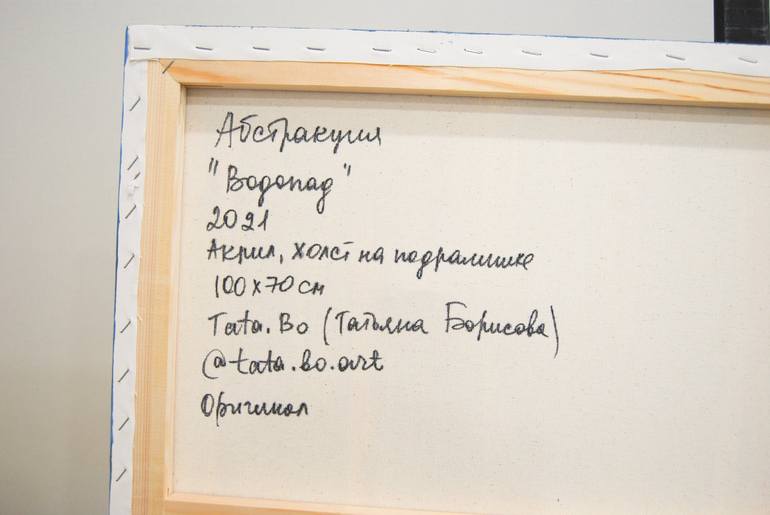 Абстракция
"Водопад"
2021
Акрил, холст на подрамнике
100x70 см
Tata.Bo (Татьяна Борисова)
@tata.bo.art
Оригинал